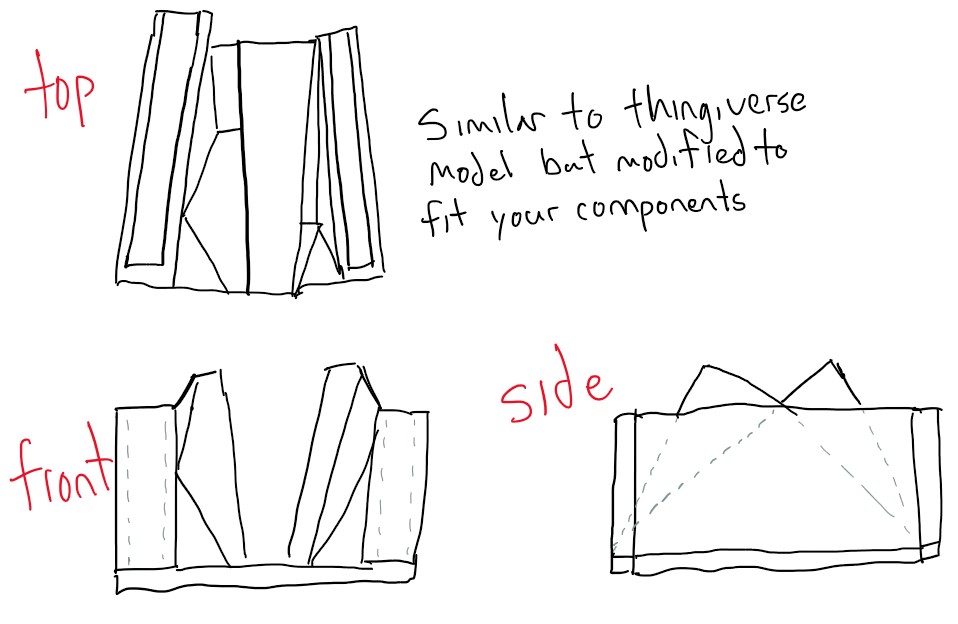 top
Similar to thingiverse
model but modified to
fit your components
front
side